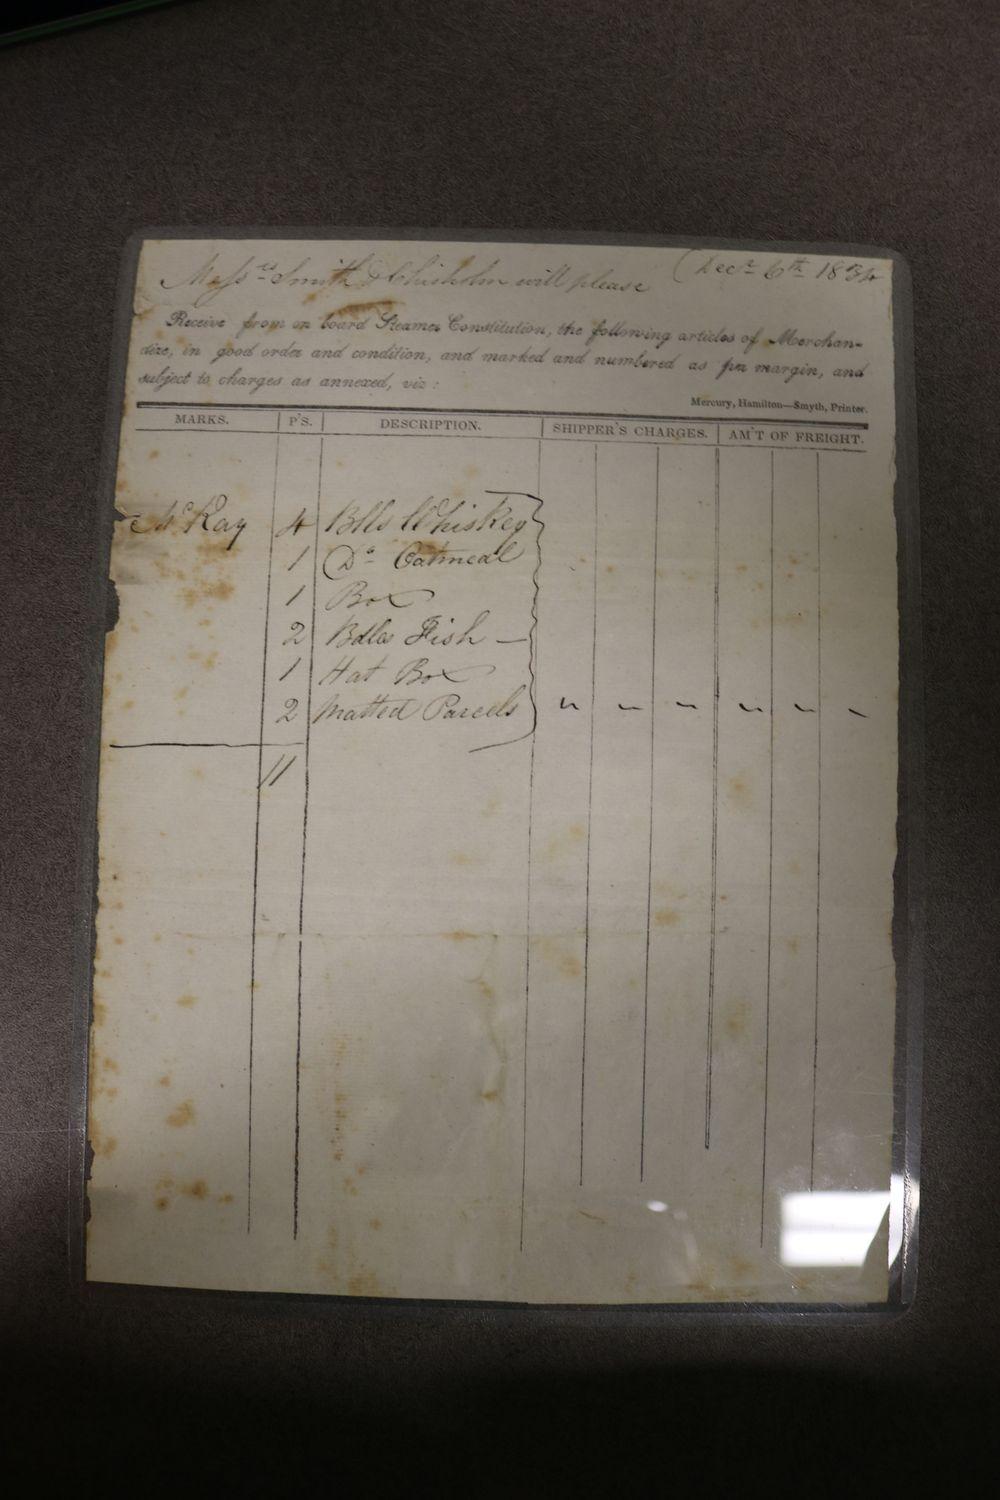 Messrs Smith & Chisholm will please
Decr 6th 1834
Receive from on board Steamer Constitution, the following articles of Merchan-
dize, in good order and condition, and marked and numbered as per margin, and
subject to charges as annexed, viz:
Mercury, Hamilton—Smyth, Printer.
MARKS. P'S. DESCRIPTION. SHIPPER'S CHARGES. AM'T OF FREIGHT.
McKay 4 Blls Whiskey
1 Do Oatmeal
1 Box
2 Bdles Fish —
1 Hat Box
2 Matted Parcels " " " " " "
11